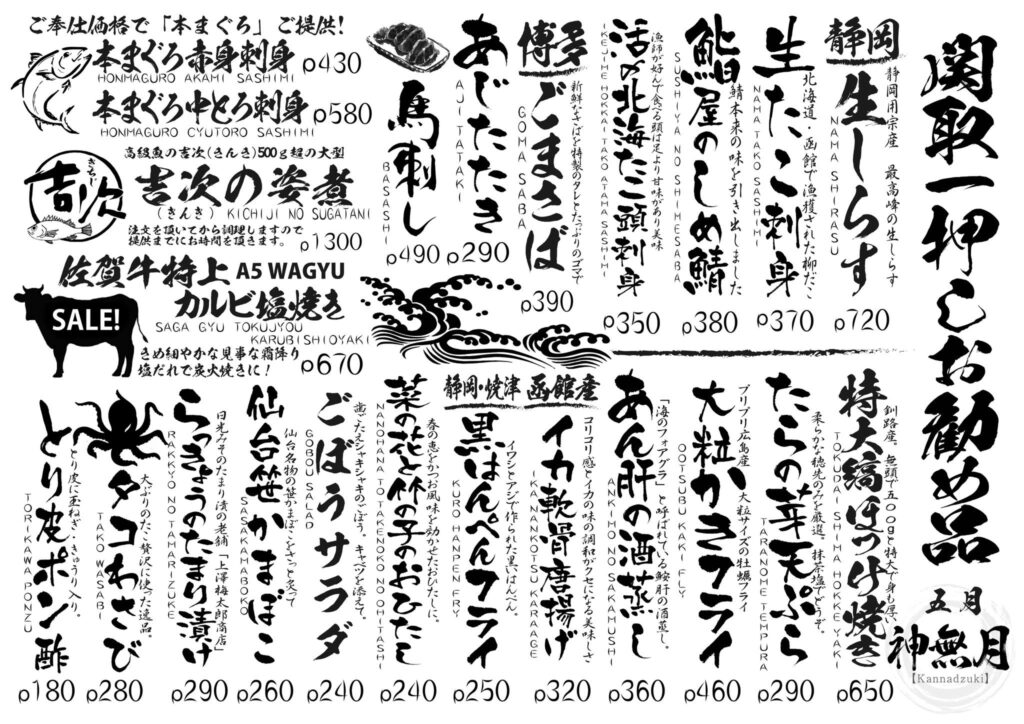 関取一押しお勧め品
五月
神無月
【Kannadzuki】
静岡
生しらす
静岡用宗産 最高峰の生しらす
NAMA SHIRASU
ρ720
生たこ刺身
北海道・函館で漁獲された柳だこ
NAMA TAKO SASHIMI
ρ370
鮨屋のしめ鯖
鯖本来の味を引き出しました
SUSHIYA NO SHIMESABA
ρ380
活〆北海たこ頭刺身
漁師が好んで食べる頭は足より甘味があり美味
IKEJIME HOKKAI TAKO ATAMA SASHIMI
ρ350
博多
ごまさば
新鮮なさばを特製のタレとたっぷりのゴマで
GOMA SABA
ρ390
あじたたき
AJI TATAKI
ρ290
馬刺し
BASASHI
ρ490
ご奉仕価格で「本まぐろ」ご提供!
本まぐろ赤身刺身 ρ430
HONMAGURO AKAMI SASHIMI
本まぐろ中とろ刺身 ρ580
HONMAGURO CYUTORO SASHIMI
高級魚の吉次(きんき)500g超の大型
きちじ
吉次
吉次の姿煮
(きんき) KICHIJI NO SUGATANI
注文を頂いてから調理しますので
提供までにお時間を頂きます。
ρ1300
佐賀牛特上 A5 WAGYU
カルビ塩焼き
SAGA GYU TOKUJYOU
KARUBI SHIOYAKI
SALE!
きめ細やかな見事な霜降り
塩だれで炭火焼きに!
ρ670
特大縞ほっけ焼き
釧路産。無頭で500gと特大で身も厚い。
TOKUDAI SHIMA HOKKE YAKI
ρ650
たらの芽天ぷら
柔らかな穂先のみを厳選。抹茶塩でどうぞ。
TARANOME TEMPURA
ρ290
大粒かきフライ
プリプリ広島産 大粒サイズの牡蠣フライ
OOTSUBU KAKI FLY
ρ460
あん肝の酒蒸し
「海のフォアグラ」と呼ばれている鮟肝の酒蒸し。
ANKIMO NO SAKAMUSHI
ρ360
函館産
イカ軟骨唐揚げ
コリコリ感とイカの味の調和がクセになる美味しさ
IKA NANKOTSU KARAAGE
ρ320
静岡・焼津
黒はんぺんフライ
イワシとアジで作られた黒いはんぺん。
KURO HANPEN FRY
ρ250
菜の花と竹の子のおひたし
春の恵をかつお風味を効かせたおひたしに。
NANOHANA TO TAKENOKO NO OHITASHI
ρ240
ごぼうサラダ
歯ごたえシャキシャキのごぼう。キャベツを添えて。
GOBOU SALAD
ρ240
仙台笹かまぼこ
仙台名物の笹かまぼこをさっと炙って
SASAKAMABOKO
ρ260
らっきょうのたまり漬け
日光みそのたまり漬の老舗「上澤梅太郎商店」
RAKKYO NO TAMARIZUKE
ρ290
タコわさび
大ぶりのたこ贅沢に使った逸品。
TAKO WASABI
ρ280
とり皮ポン酢
とり皮に玉ねぎ・きゅうり入り。
TORIKAWA PONZU
ρ180